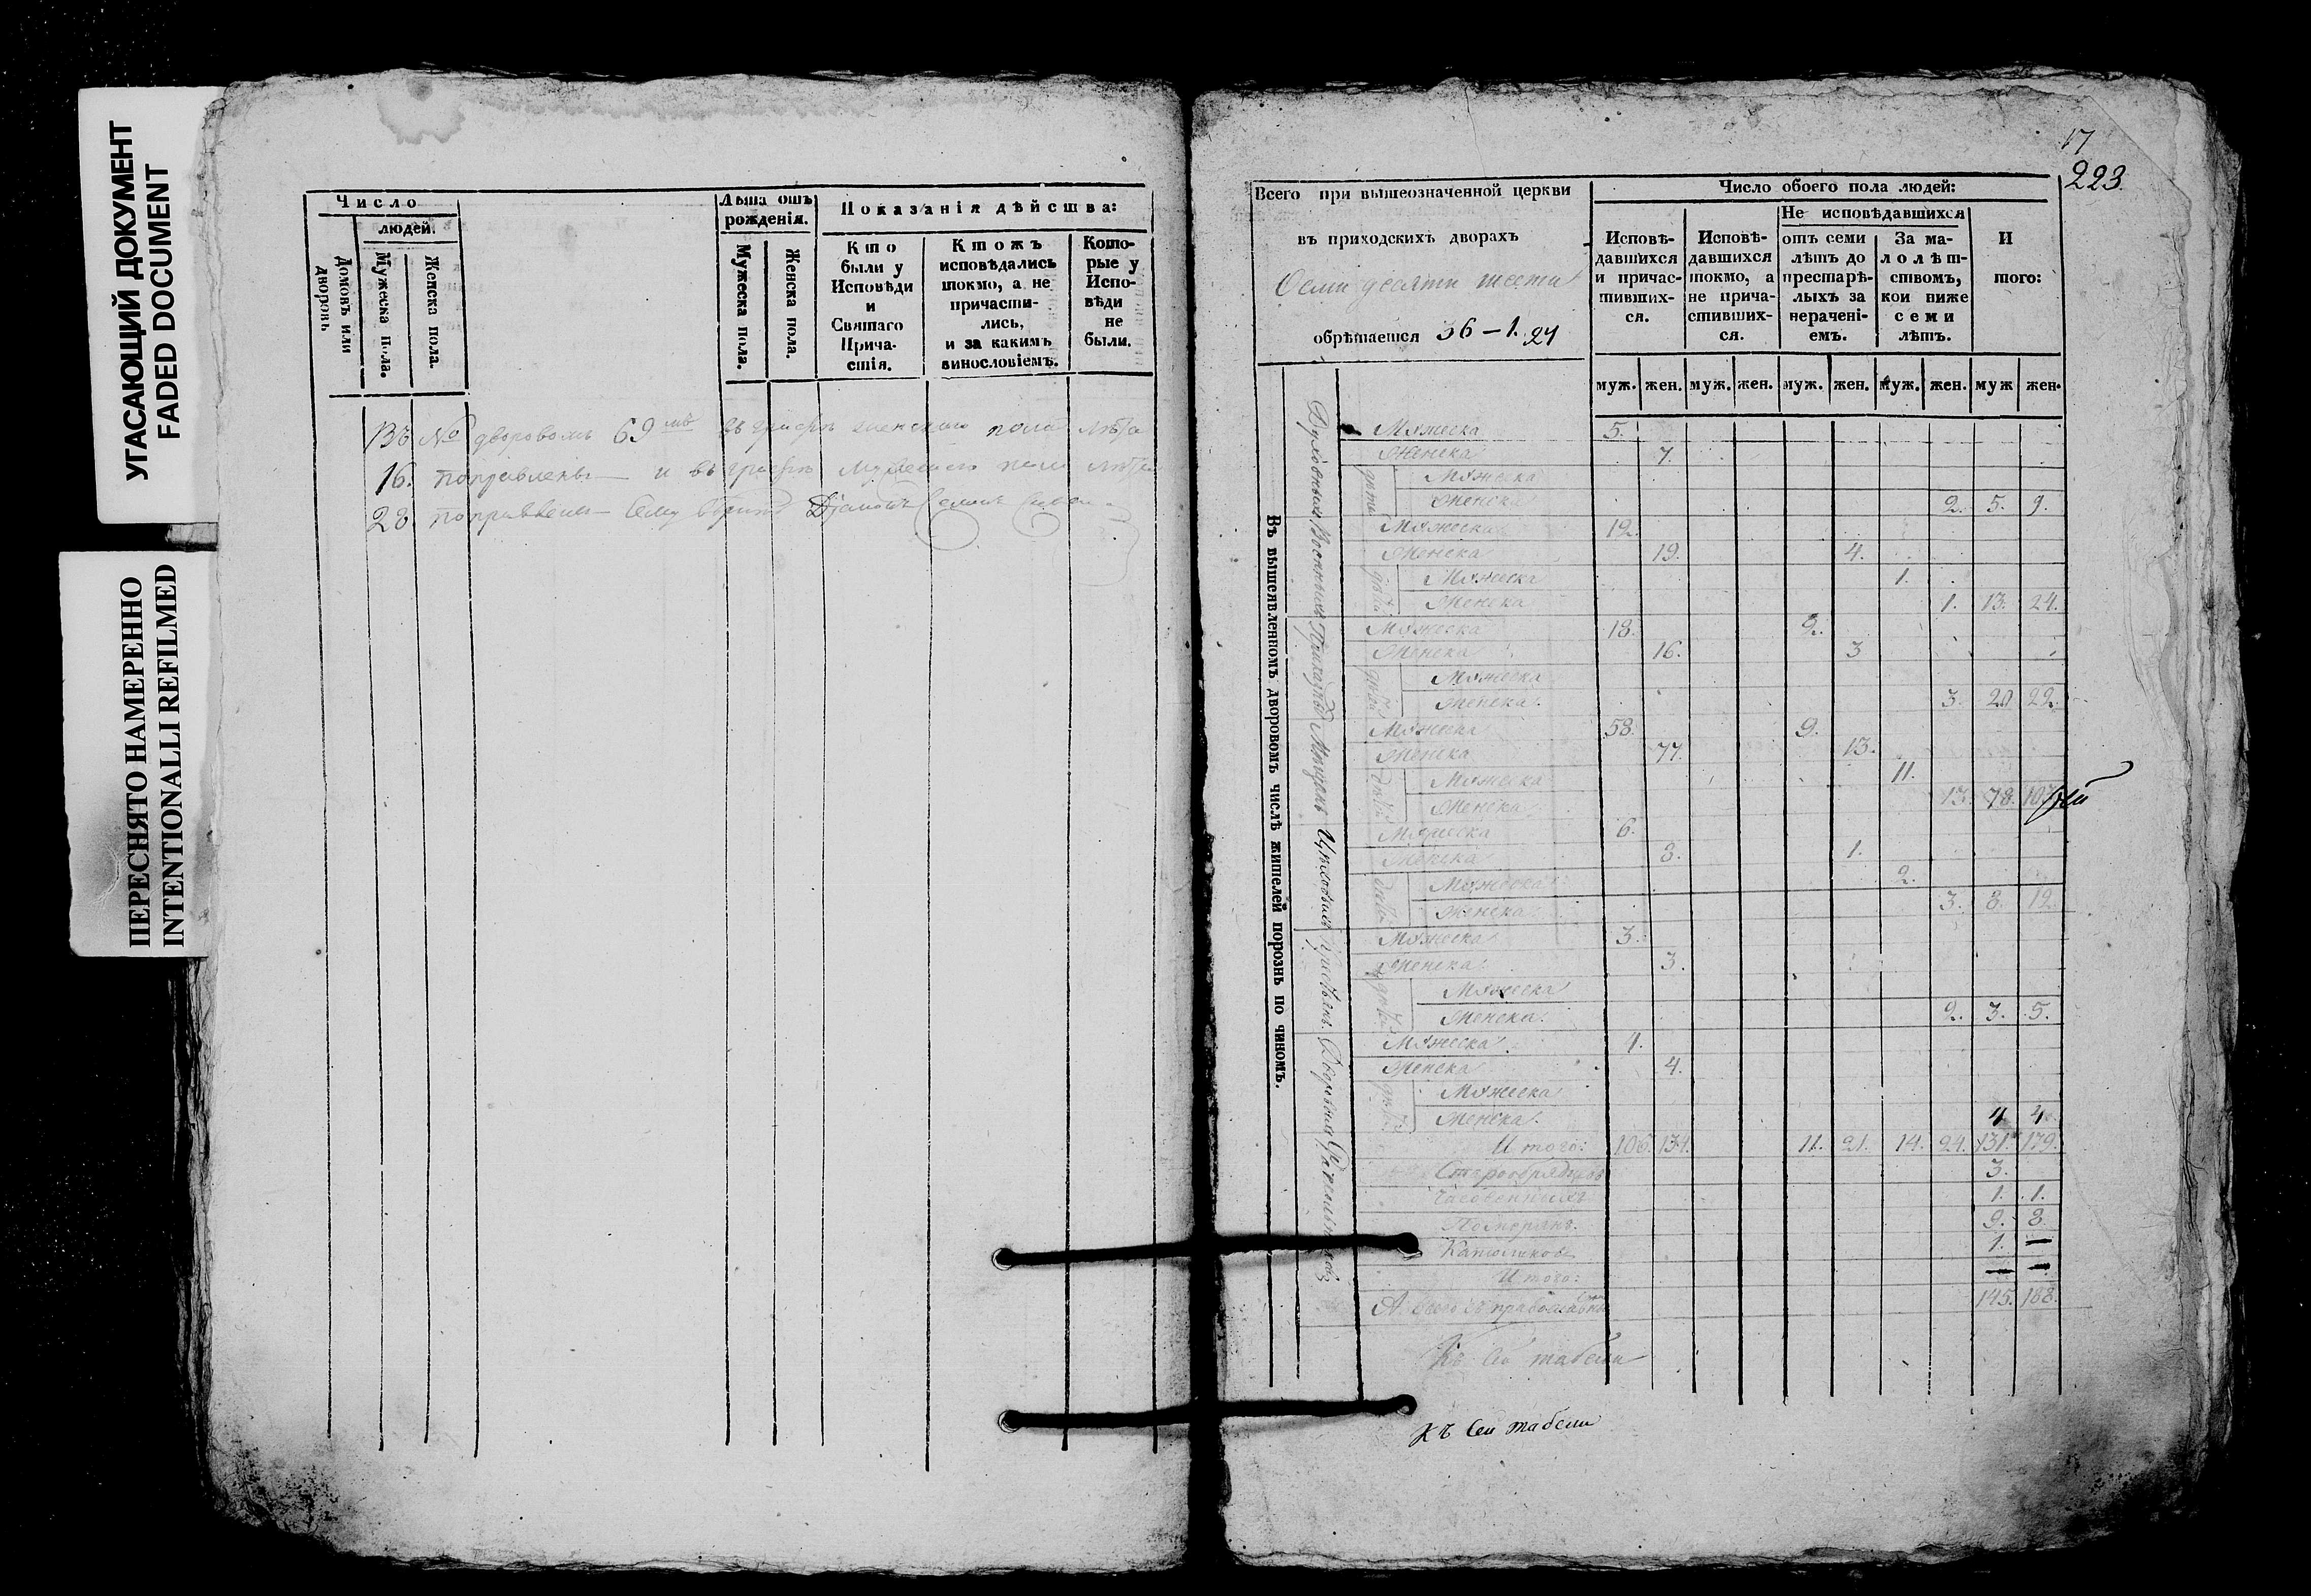 УГАСАЮЩИЙ ДОКУМЕНТ
FADED DOCUMENT
ПЕРЕСНЯТО НАМЕРЕННО
INTENTIONALLI REFILMED
Число
людей.
Домовъ или дворовъ
Мужеска пола.
Женска пола.
Лѣта отъ рожденія.
Мужеска пола.
Женска пола.
Показанія дѣйства:
Кто были у Исповѣди и Святаго Причастія.
Ктожъ исповѣдались токмо, а не причастились, и за какимъ винословіемъ.
Которые у Исповѣди не были.
Въ № дворовомъ 69мъ въ графѣ женскаго пола лѣта
16. поправлены и въ графѣ мужескаго пола лѣта
28 поправлены
17
223.
Всего при вышеозначенной церкви
въ приходскихъ дворахъ
Осми десяти шести
обрѣтается 36 – 1. 24
Число обоего пола людей:
Исповѣдавшихся и причастившихся.
Исповѣдавшихся токмо, а не причастившихся.
Не исповѣдавшихся
отъ семи лѣтъ до престарѣлыхъ за нераченіемъ.
За малолѣтствомъ, кои ниже семи лѣтъ.
И того:
муж. жен. муж. жен. муж. жен. муж. жен. муж жен.
Въ вышеявленномъ дворовомъ числѣ жителей порознь по чиномъ.
Духовныхъ
Мужеска 5.
Женска 7.
дѣтей
Мужеска
Женска 2. 5. 9.
Военныхъ
Мужеска 12.
Женска 19. 4.
дѣтей
Мужеска 1.
Женска 1. 13. 24.
Приказныхъ
Мужеска 18. 2.
Женска 16. 3
дѣтей
Мужеска
Женска. 3. 20 22.
Мѣщанъ
Мужеска 58. 9.
Женска 77. 13.
дѣтей
Мужеска 11.
Женска 13. 78. 103
Цѣховыхъ
Мужеска 6.
Женска 8. 1.
дѣтей
Мужеска 2.
Женска 3. 8. 12
Крестьянъ
Мужеска 3.
Женска 3.
дѣтей
Мужеска
Женска. 2. 3. 5.
Дворовыхъ
Мужеска 4.
Женска 4.
дѣтей
Мужеска
Женска. 4 4
Итого: 106. 134. 11. 21. 14. 24. 131. 179.
Старообрядцовъ 3.
Часовенныхъ 1. 1.
Поморянъ. 9. 8.
Католиковъ 1. —
Итого: — —
А всего съ православными 145. 188.
Къ сей табели
Къ сей табели